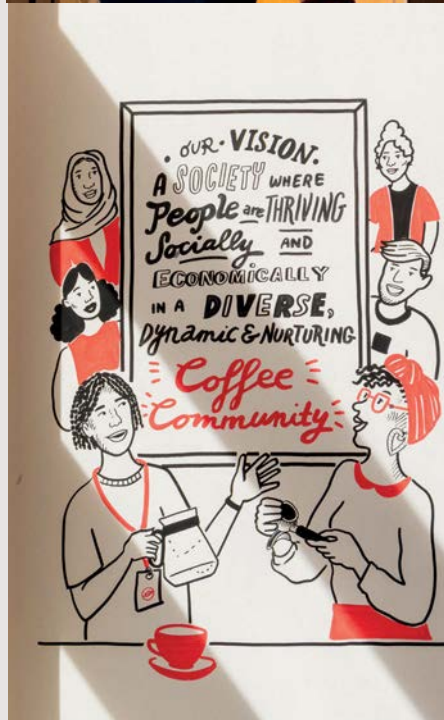 • OUR • VISION •
A SOCIETY WHERE
People are THRIVING
Socially AND
ECONOMICALLY
IN A DIVERSE,
Dynamic & NURTURING
Coffee
Community